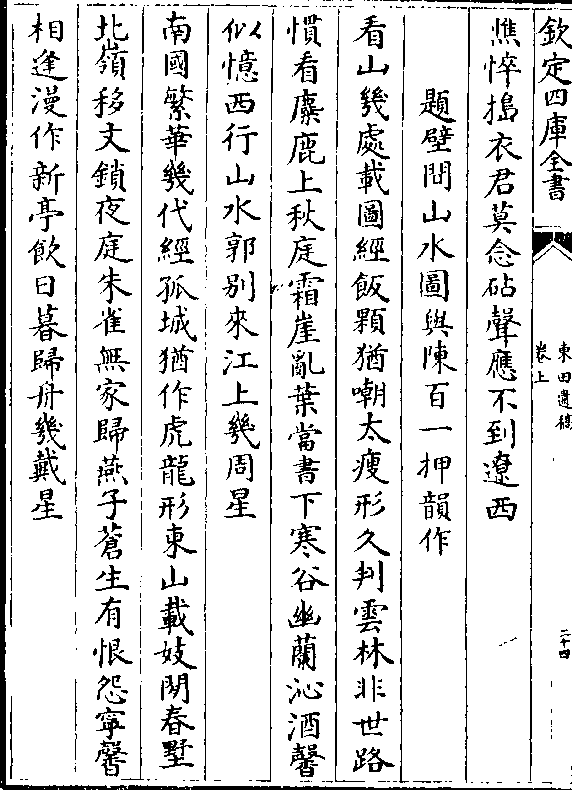 欽定四庫全書
東田遺稿
卷上
二十四
憔悴搗衣君莫念砧聲應不到遼西
題壁間山水圖與陳百一押韻作
看山幾處載圖經飯顆猶嘲太瘦形久判雲林非世路
慣看麋鹿上秋庭霜崖亂葉當書下寒谷幽蘭沁酒馨
似憶西行山水郭別來江上幾周星
南國繁華幾代經孤城猶作虎龍形東山載妓開春墅
北嶺移文鎖夜庭朱雀無家歸燕子蒼生有恨怨寧馨
相逢漫作新亭飲日暮歸舟幾戴星